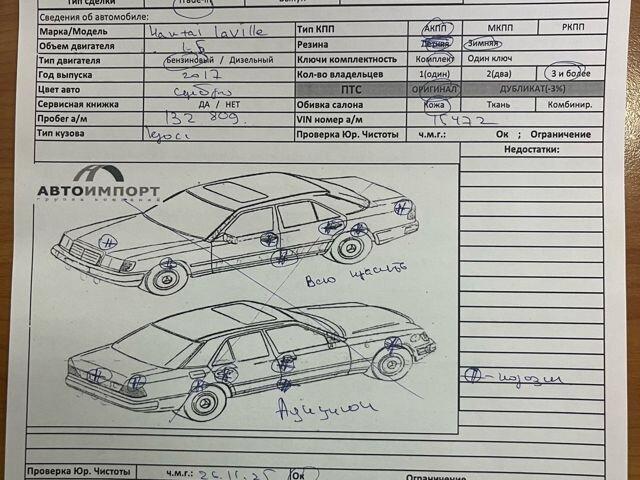 Тип сделки Trade-in Выкуп
Сведения об автомобиле:
Марка/Модель Haval Тип КПП АКПП МКПП РКПП
Объем двигателя 1.5 Резина Летняя Зимняя
Тип двигателя бензиновый / Дизельный Ключи комплектность Комплект Один ключ
Год выпуска 2017 Кол-во владельцев 1(один) 2(два) 3 и более
Цвет авто серебро ПТС ОРИГИНАЛ ДУБЛИКАТ(-3%)
Сервисная книжка ДА / НЕТ Обивка салона Кожа Ткань Комбинир.
Пробег а/м 132 809. VIN номер а/м 15472
Тип кузова кросс Проверка Юр. Чистоты ч.м.г.: Ок ; Ограничение
Недостатки:
АВТОИМПОРТ
группа компаний
Всю красить
Аукцион
Проверка Юр. Чистоты ч.м.г.: 26.11.25 Ок Ограничение